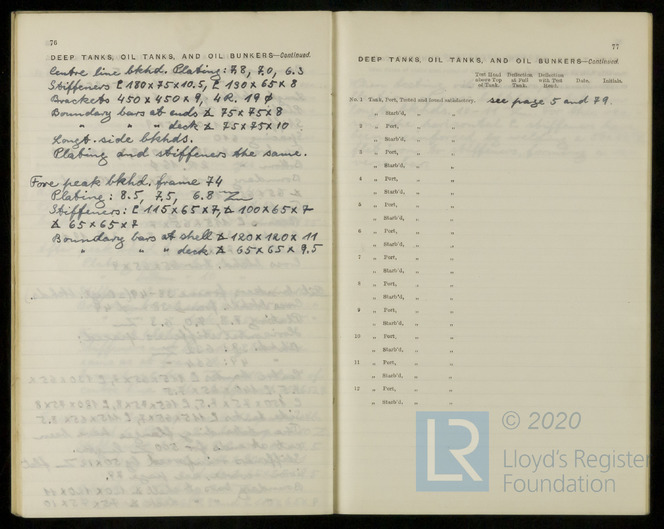 76
DEEP TANKS, OIL TANKS, AND OIL BUNKERS—Continued.
Centre line bkhd. Plating: 7.8, 7.0, 6.3
Stiffeners [ 180 x 75 x 10.5, [ 130 x 65 x 8
Brackets 450 x 450 x 9, 4R. 19 ϕ
Boundary bars at ends ⊾ 75 x 75 x 8
" " " deck ⊾ 75 x 75 x 10
Longt. side bkhds.
Plating and stiffeners the same.
Fore peak bkhd. frame 74
Plating: 8.5, 7.5, 6.8
Stiffeners: [ 115 x 65 x 7, ⊾ 100 x 65 x 7
⊾ 65 x 65 x 7
Boundary bars at shell ⊾ 120 x 120 x 11
" " " deck ⊾ 65 x 65 x 9.5
77
DEEP TANKS, OIL TANKS, AND OIL BUNKERS—Continued.
Test Head above Top of Tank. Deflection at Full Tank. Deflection with Test Head. Date. Initials.
No. 1 Tank, Port, Tested and found satisfactory. see page 5 and 79.
" Starb'd, " "
2 " Port, " "
" Starb'd, " "
3 " Port, " "
" Starb'd, " "
4 " Port, " "
" Starb'd, " "
5 " Port, " "
" Starb'd, " "
6 " Port, " "
" Starb'd, " "
7 " Port, " "
" Starb'd, " "
8 " Port, " "
" Starb'd, " "
9 " Port, " "
" Starb'd, " "
10 " Port, " "
" Starb'd, " "
11 " Port, " "
" Starb'd, " "
12 " Port, " "
" Starb'd, " "
LR
© 2020
Lloyd's Register
Foundation